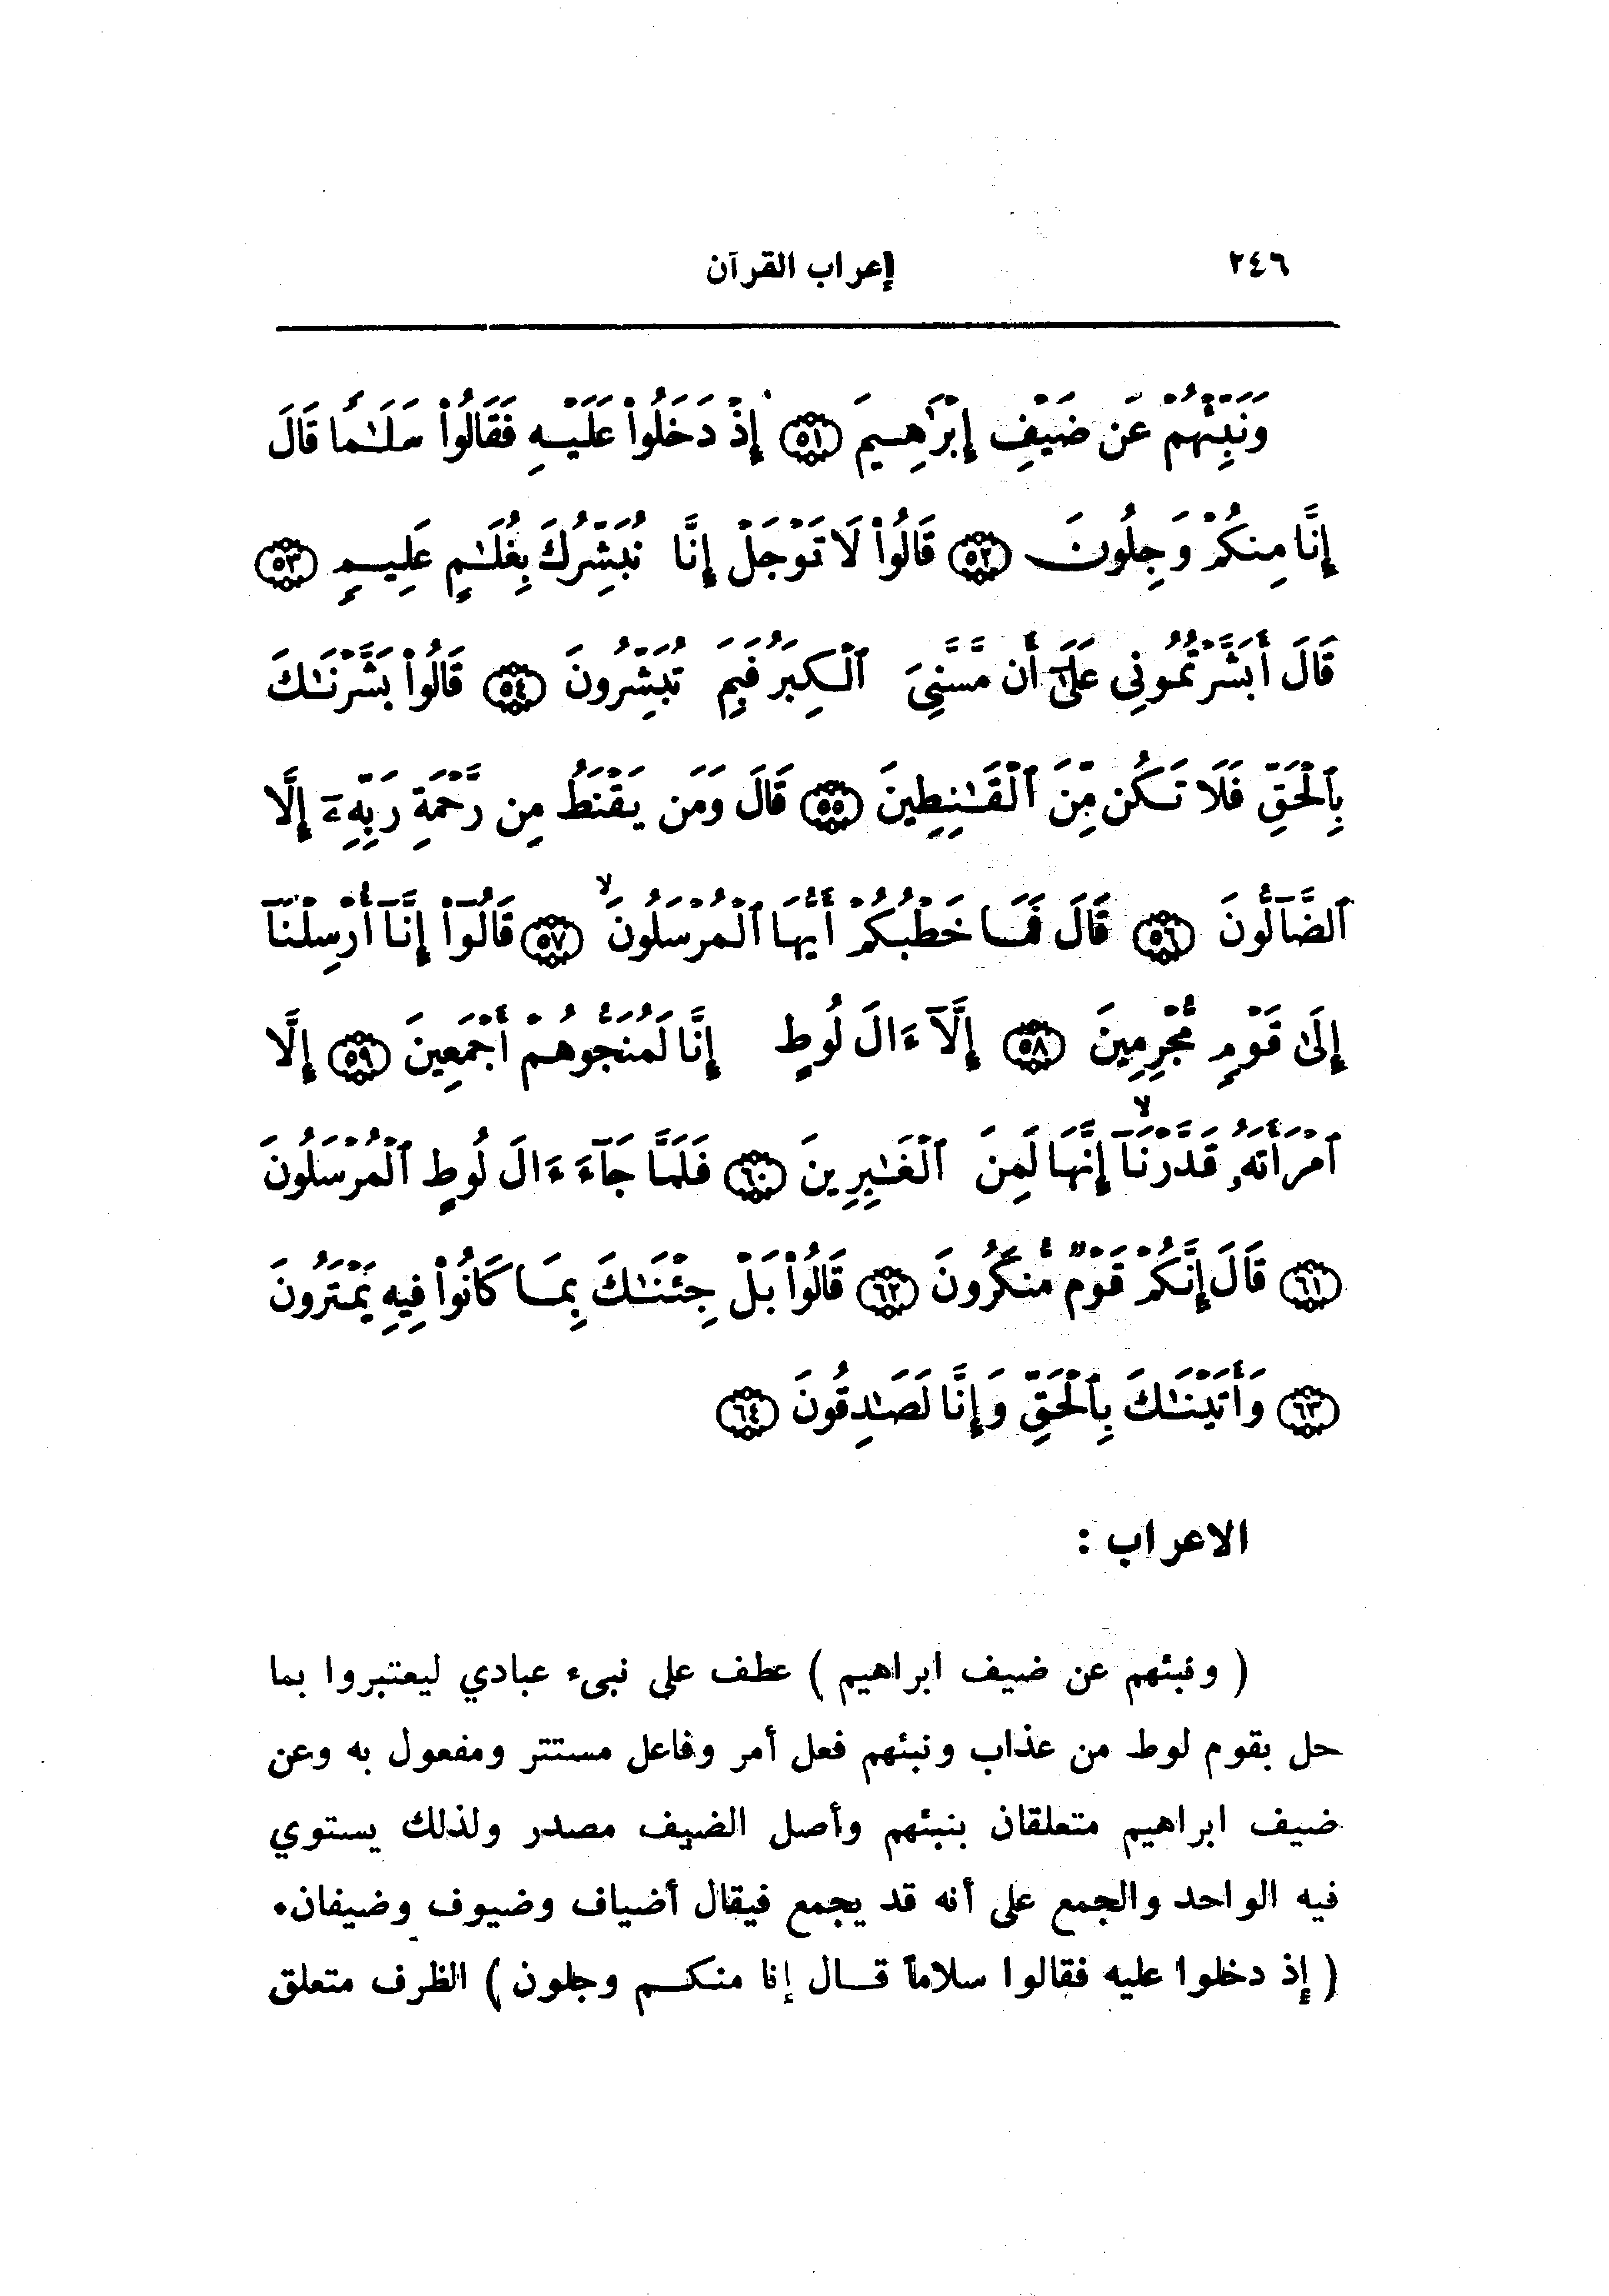 ٢٤٦ إعراب القرآن
وَنَبِّئْهُمْ عَن ضَيْفِ إِبْرَٰهِيمَ ﴿٥١﴾ إِذْ دَخَلُوا۟ عَلَيْهِ فَقَالُوا۟ سَلَـٰمًا قَالَ
إِنَّا مِنكُمْ وَجِلُونَ ﴿٥٢﴾ قَالُوا۟ لَا تَوْجَلْ إِنَّا نُبَشِّرُكَ بِغُلَـٰمٍ عَلِيمٍ ﴿٥٣﴾
قَالَ أَبَشَّرْتُمُونِى عَلَىٰٓ أَن مَّسَّنِىَ ٱلْكِبَرُ فَبِمَ تُبَشِّرُونَ ﴿٥٤﴾ قَالُوا۟ بَشَّرْنَـٰكَ
بِٱلْحَقِّ فَلَا تَكُن مِّنَ ٱلْقَـٰنِطِينَ ﴿٥٥﴾ قَالَ وَمَن يَقْنَطُ مِن رَّحْمَةِ رَبِّهِۦٓ إِلَّا
ٱلضَّآلُّونَ ﴿٥٦﴾ قَالَ فَمَا خَطْبُكُمْ أَيُّهَا ٱلْمُرْسَلُونَ ۙ ﴿٥٧﴾ قَالُوٓا۟ إِنَّآ أُرْسِلْنَآ
إِلَىٰ قَوْمٍ مُّجْرِمِينَ ﴿٥٨﴾ إِلَّآ ءَالَ لُوطٍ إِنَّا لَمُنَجُّوهُمْ أَجْمَعِينَ ﴿٥٩﴾ إِلَّا
ٱمْرَأَتَهُۥ قَدَّرْنَآ ۙ إِنَّهَا لَمِنَ ٱلْغَـٰبِرِينَ ﴿٦٠﴾ فَلَمَّا جَآءَ ءَالَ لُوطٍ ٱلْمُرْسَلُونَ
﴿٦١﴾ قَالَ إِنَّكُمْ قَوْمٌ مُّنكَرُونَ ﴿٦٢﴾ قَالُوا۟ بَلْ جِئْنَـٰكَ بِمَا كَانُوا۟ فِيهِ يَمْتَرُونَ
﴿٦٣﴾ وَأَتَيْنَـٰكَ بِٱلْحَقِّ وَإِنَّا لَصَـٰدِقُونَ ﴿٦٤﴾
الاعراب :
( ونبئهم عن ضيف ابراهيم ) عطف على نبىء عبادي ليعتبروا بما
حل بقوم لوط من عذاب ونبئهم فعل أمر وفاعل مستتر ومفعول به وعن
ضيف ابراهيم متعلقان بنبئهم وأصل الضيف مصدر ولذلك يستوي
فيه الواحد والجمع على أنه قد يجمع فيقال أضياف وضيوف وضيفان.
( إذ دخلوا عليه فقالوا سلاماً قـال إنا منكـم وجلون ) الظرف متعلق